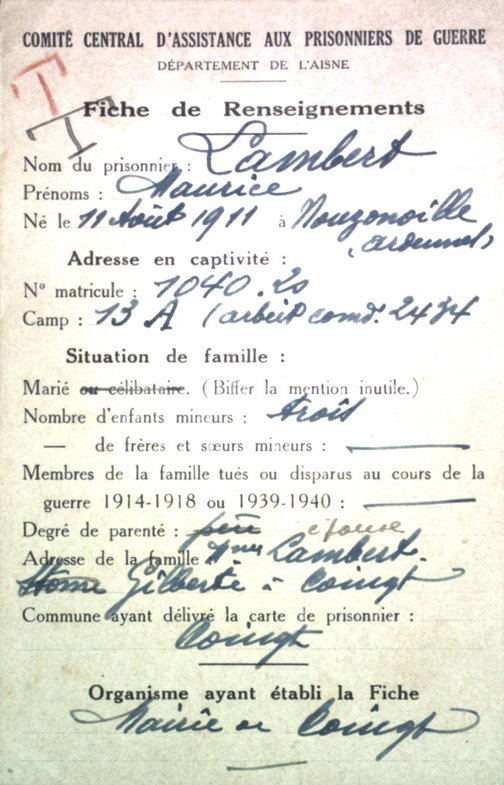 COMITÉ CENTRAL D'ASSISTANCE AUX PRISONNIERS DE GUERRE
DÉPARTEMENT DE L'AISNE
Fiche de Renseignements
Nom du prisonnier : Lambert
Prénoms : Maurice
Né le 11 Août 1911 à Nouzonville
(Ardennes)
Adresse en captivité :
N° matricule : 1040.20
Camp : 13 A (arbeit comd. 2434
Situation de famille :
Marié ou célibataire. (Biffer la mention inutile.)
Nombre d'enfants mineurs : trois
— de frères et sœurs mineurs : —
Membres de la famille tués ou disparus au cours de la
guerre 1914-1918 ou 1939-1940 : —
Degré de parenté : père epouse
Adresse de la famille Mme Lambert.
Gilberte à Coingt
Commune ayant délivré la carte de prisonnier :
Coingt
Organisme ayant établi la Fiche
Mairie de Coingt